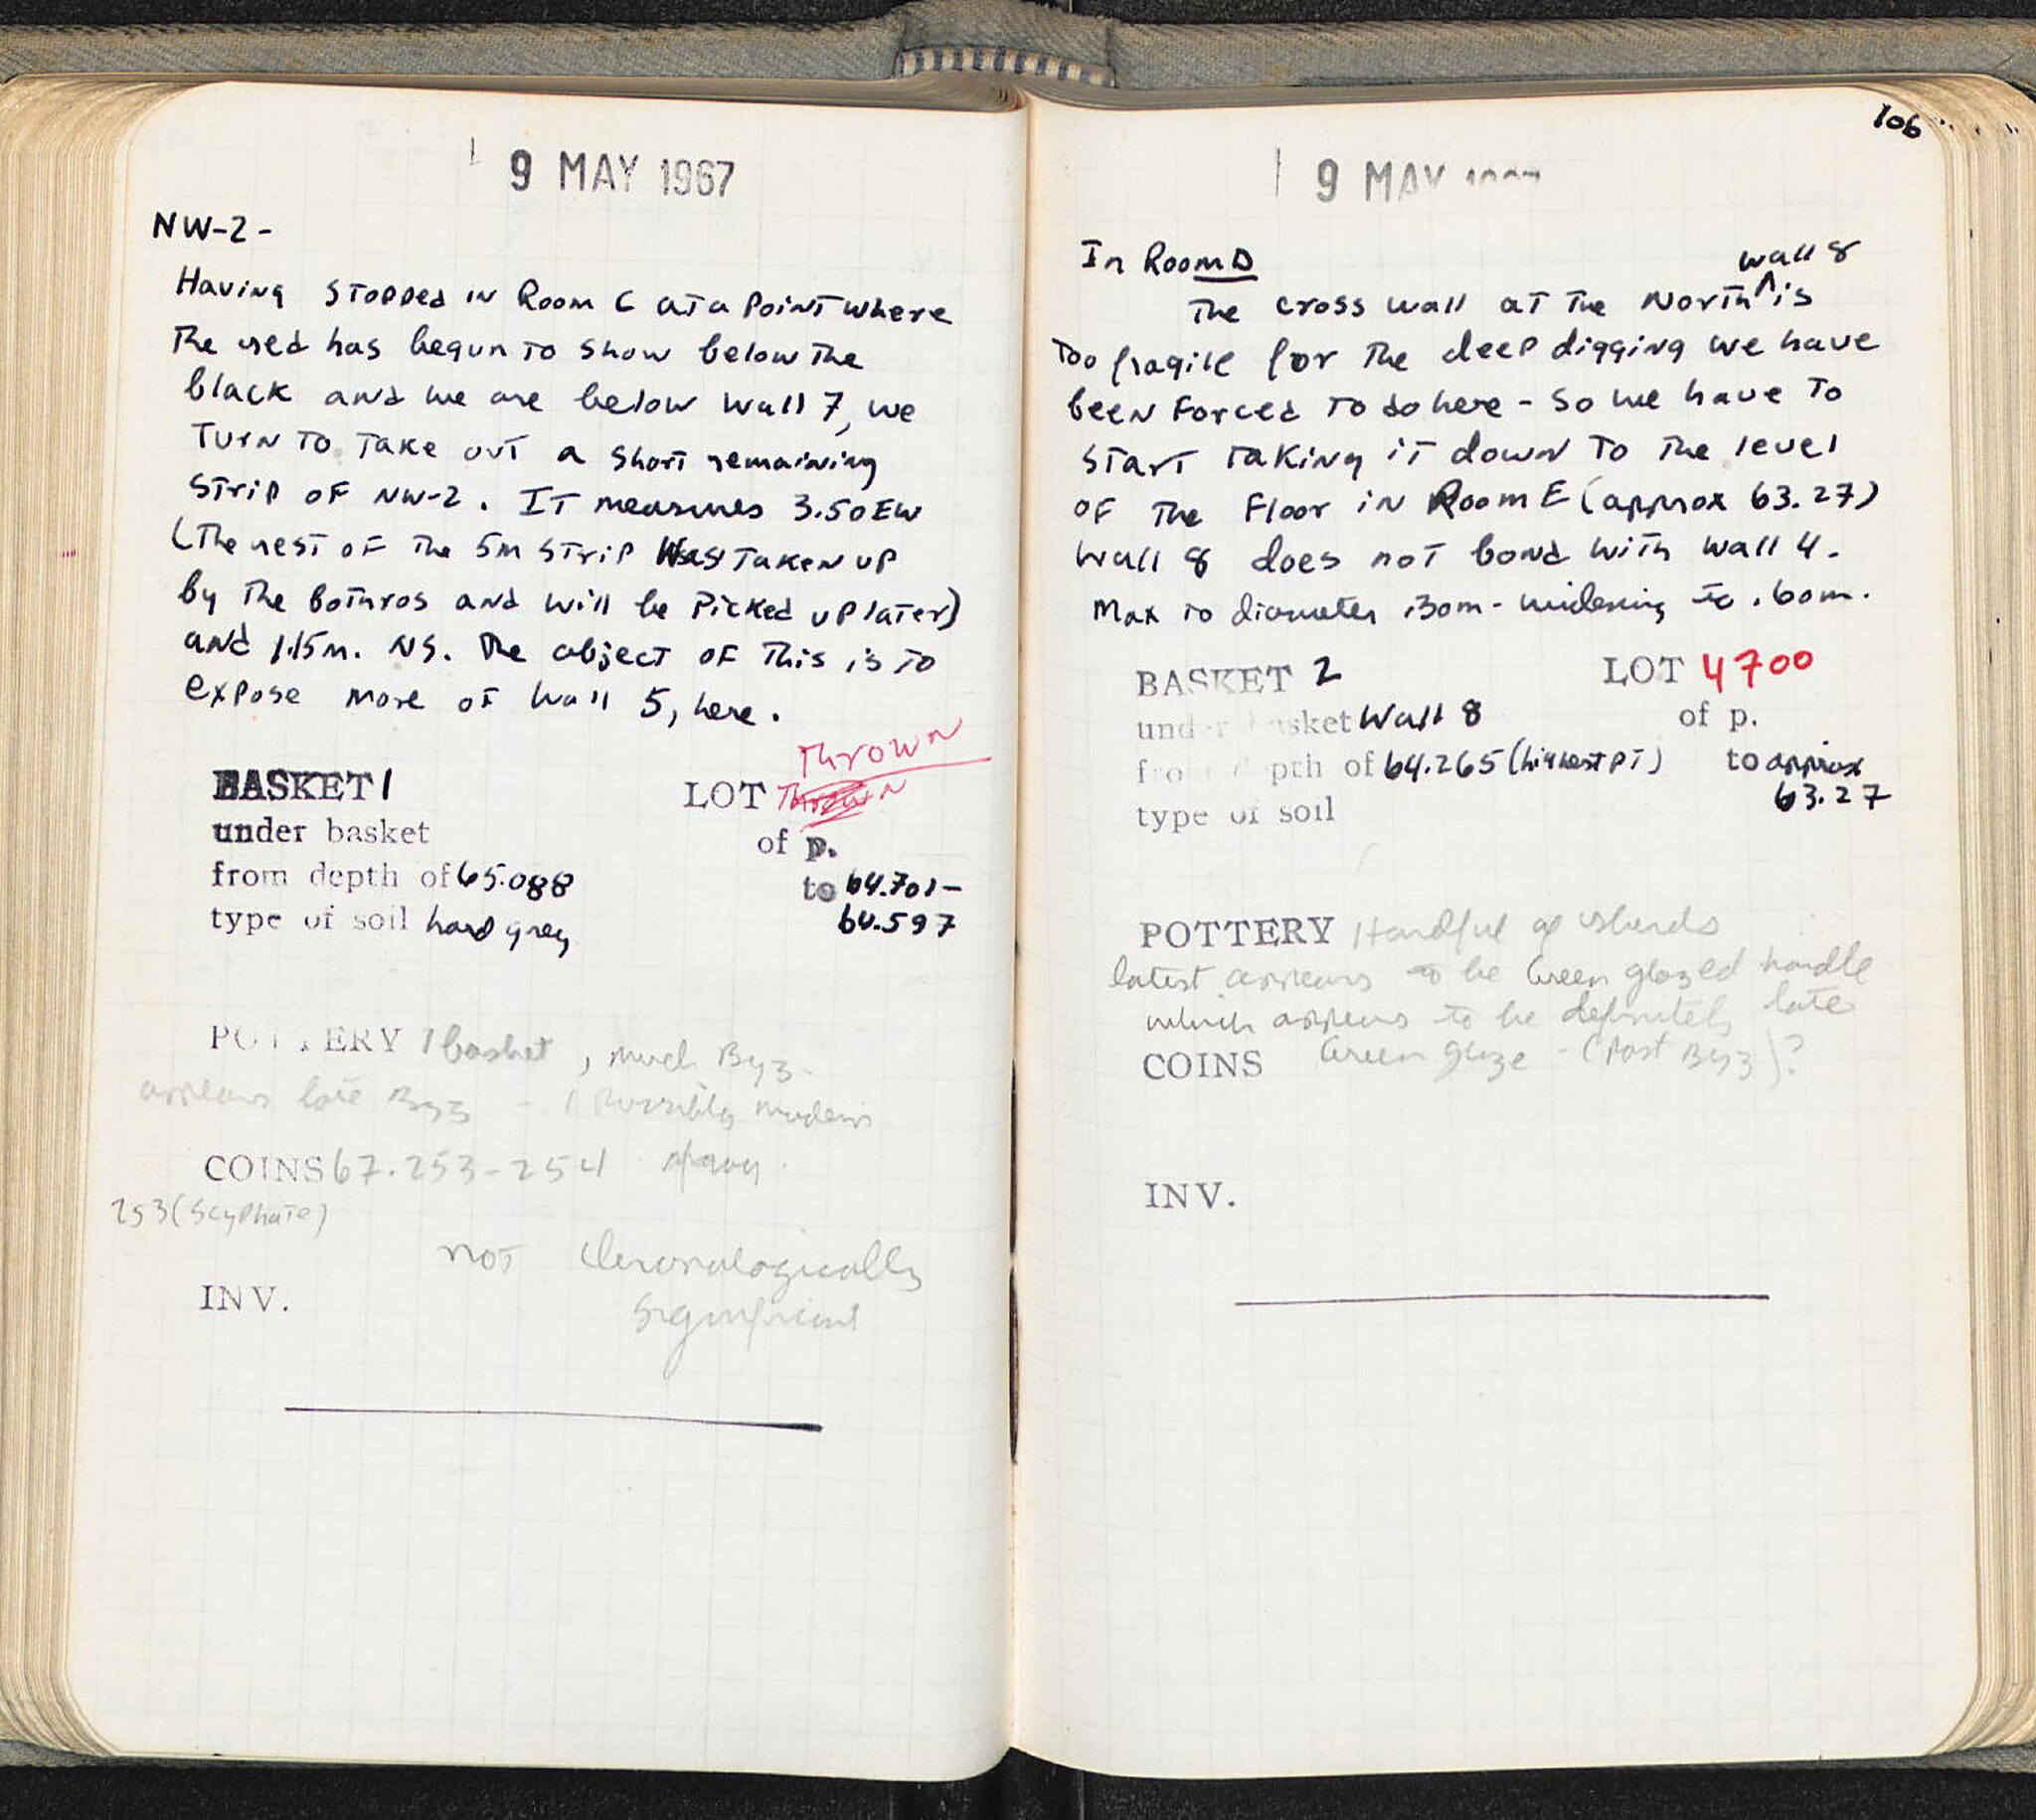 9 MAY 1967
NW-2-
Having stopped in Room C at a point where
the red has begun to show below the
black and we are below wall 7, we
turn to take out a short remaining
strip of NW-2. It measures 3.50 EW
(the rest of the 5m strip was taken up
by the bothros and will be picked up later)
and 1.15m. NS. The object of this is to
expose more of wall 5, here.
Thrown
BASKET 1 LOT Thrown
under basket of p.
from depth of 65.088 to 64.701-
type of soil hard grey 64.597
POTTERY 1 basket, much Byz-
appears late Byz - 1 possibly modern
COINS 67.253-254
253 (scyphate)
not chronologically
significant
INV.
106
19 MAY
In Room D
wall 8
The cross wall at the North ^ is
too fragile for the deep digging we have
been forced to do here - so we have to
start taking it down to the level
of the floor in Room E (approx 63.27)
Wall 8 does not bond with wall 4.
Max to diameter .30m - widening to .60m.
BASKET 2 LOT 4700
under basket Wall 8 of p.
from depth of 64.265 (highest pt) to approx
63.27
type of soil
POTTERY Handful of sherds
latest appears to be Green glazed handle
which appears to be definitely late
COINS Green glaze - (Post Byz)?
INV.